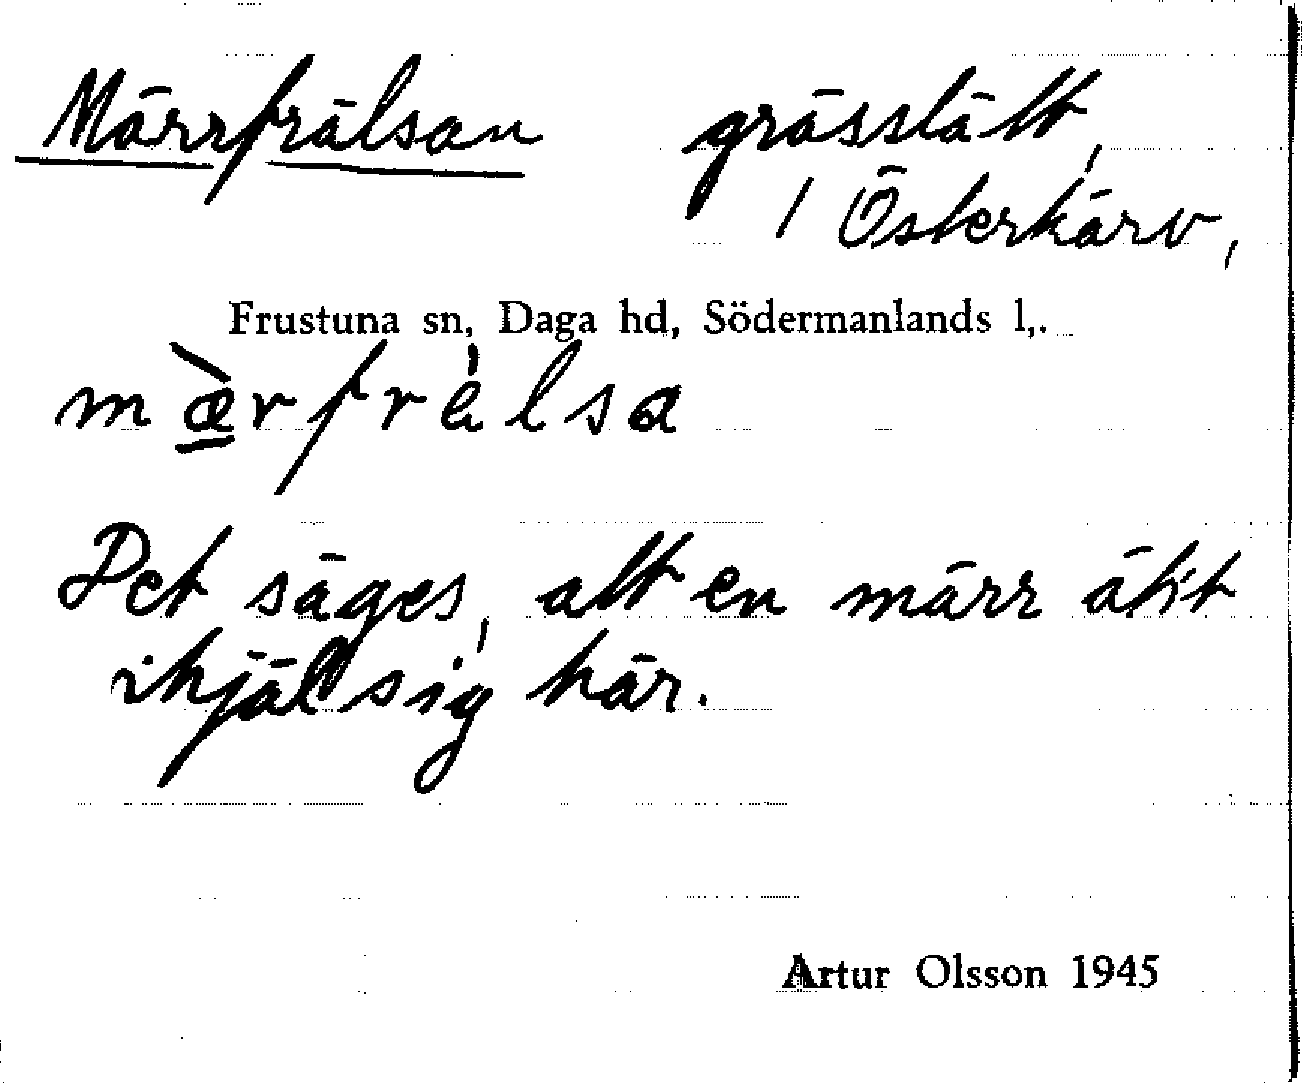 Märrfrälsan grässlätt,
/ Österkärv,
Frustuna sn, Daga hd, Södermanlands l,.
mæ̱̀rfrelsa
Det säges, att en märr ätit
ihjäl sig här.
Artur Olsson 1945